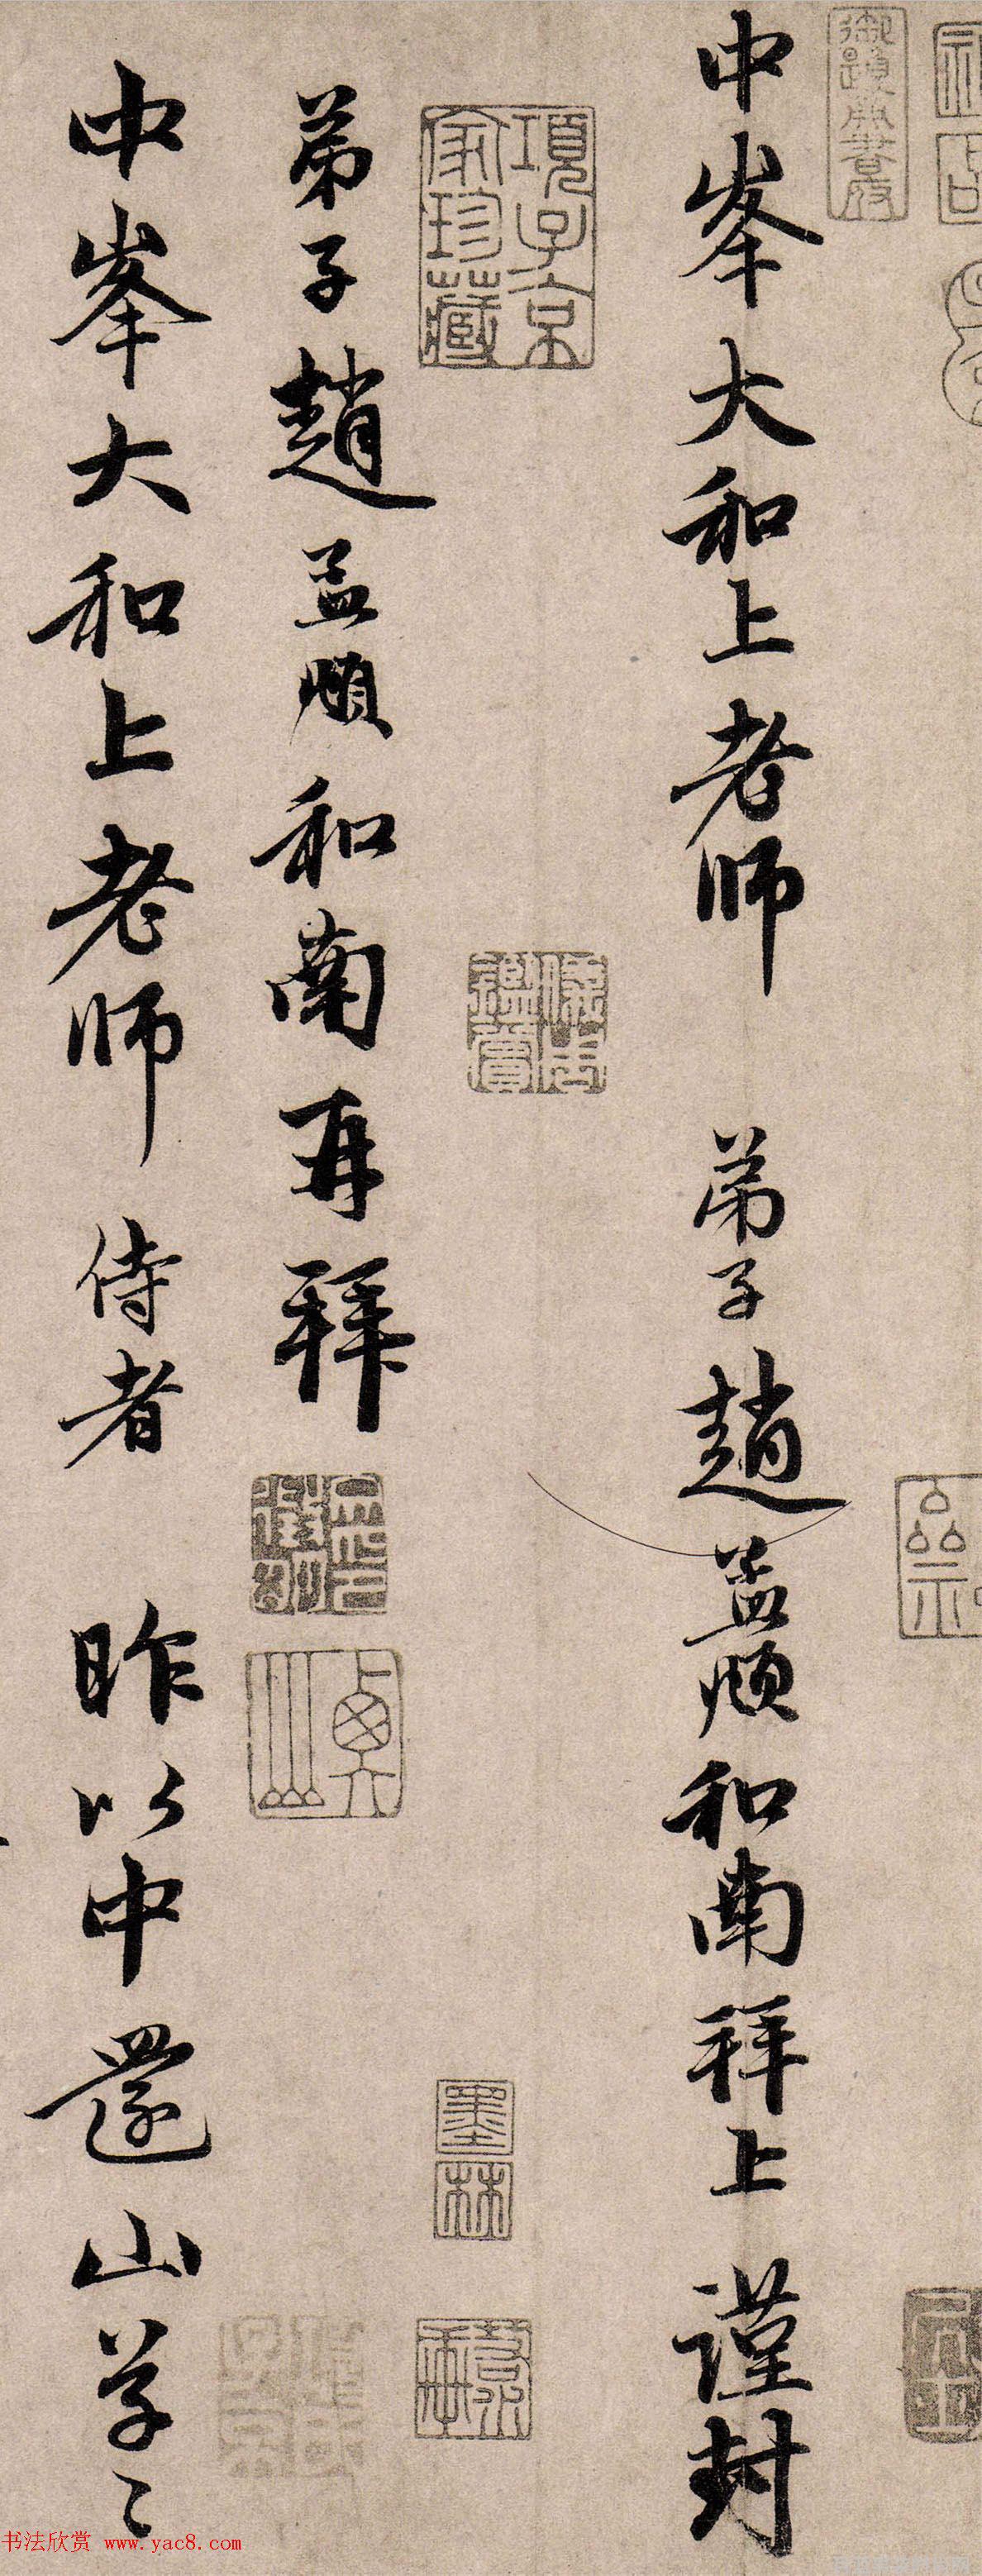 中峯大和上老师 弟子趙孟頫和南拜上 謹封
弟子趙孟頫和南再拜
中峯大和上老师侍者 昨以中還山草〻
項子京家珍藏
墨林
書法欣赏 www.yac8.com